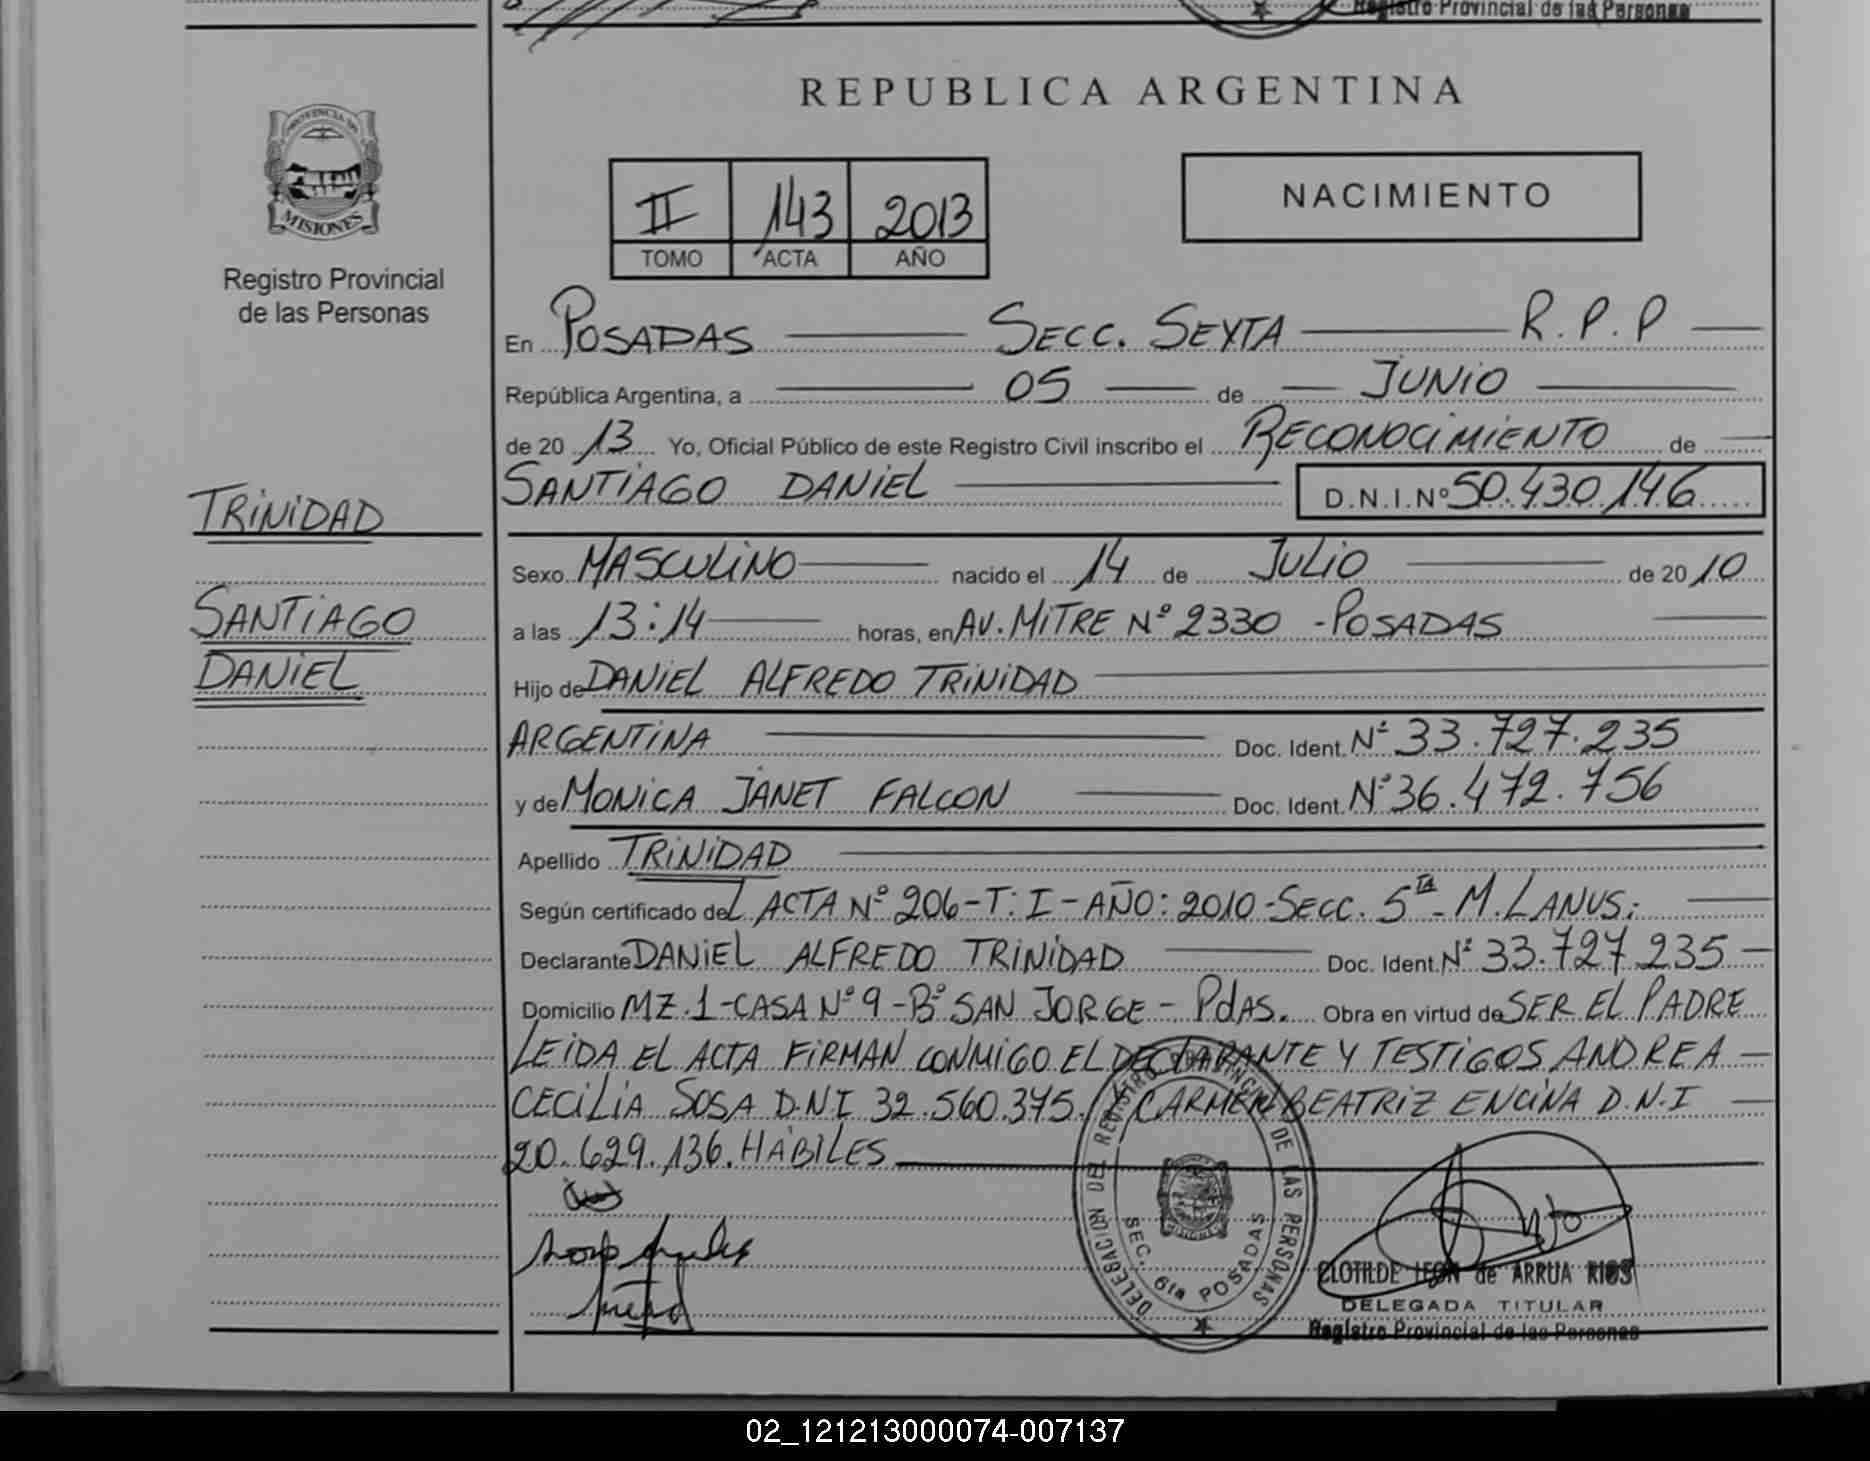 Registro Provincial de las Personas
REPUBLICA ARGENTINA
PROVINCIA DE
MISIONES
Registro Provincial
de las Personas
II 143 2013
TOMO ACTA AÑO
NACIMIENTO
En POSADAS SECC. SEXTA R.P.P
República Argentina, a 05 de JUNIO
de 20 13 Yo, Oficial Público de este Registro Civil inscribo el RECONOCIMIENTO de
SANTIAGO DANIEL D.N.I.Nº 50.430.146
TRINIDAD
SANTIAGO
DANIEL
Sexo MASCULINO nacido el 14 de JULIO de 20 10
a las 13:14 horas, en AV. MITRE Nº 2330 - POSADAS
Hijo de DANIEL ALFREDO TRINIDAD
ARGENTINA Doc. Ident. Nº 33.727.235
y de MONICA JANET FALCON Doc. Ident. Nº 36.472.756
Apellido TRINIDAD
Según certificado del ACTA Nº 206-T: I-AÑO: 2010-SECC. 5TA- M. LANUS;
Declarante DANIEL ALFREDO TRINIDAD Doc. Ident. Nº 33.727.235
Domicilio MZ.1-CASA Nº 9-Bº SAN JORGE - PdAS. Obra en virtud de SER EL PADRE
LEIDA EL ACTA FIRMAN CONMIGO EL DECLARANTE Y TESTIGOS ANDREA
CECILIA SOSA D.N.I 32.560.375. Y CARMEN BEATRIZ ENCINA D.N.I
20.629.136. HABILES
DELEGACION DEL REGISTRO PROVINCIAL DE LAS PERSONAS
SEC. 6ta POSADAS
CLOTILDE LEON de ARRUA RIOS
DELEGADA TITULAR
Registro Provincial de las Personas
02_121213000074-007137